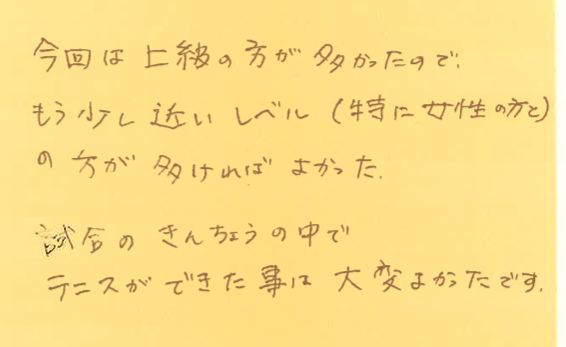 今回は上級の方が多かったので、
もう少し近いレベル(特に女性の方と)
の方が多ければよかった.
試合のきんちょうの中で
テニスができた事は大変よかったです.